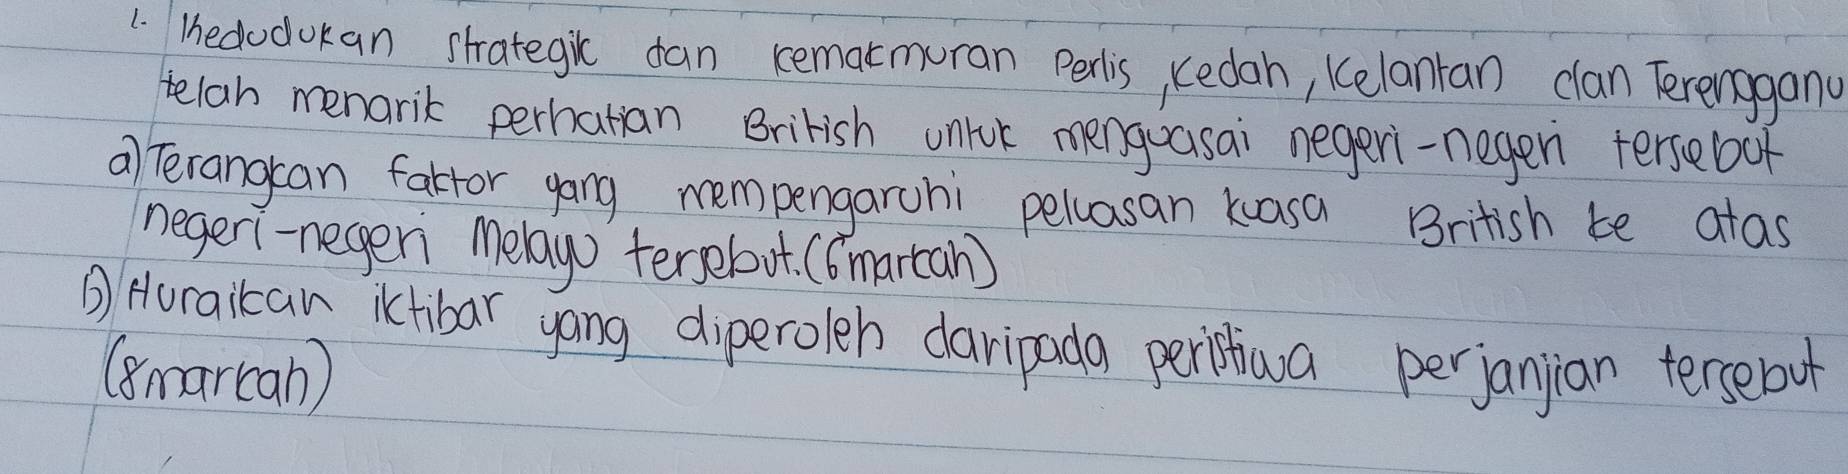 1. Kedudukan strategik dan kemakmuran Perlis, Kedah, Kelantan dan Terengganu
telah menarik perhatian British untuk menguasai negeri-negeri tersebut
a) Terangkan faktor yang mempengaruhi peluasan kuasa British ke atas
negeri-negeri Melayu tersebut. (6 markah)
b) Huraikan iktibar yang diperoleh daripada peristiwa perjanjian tersebut
(8 markah)